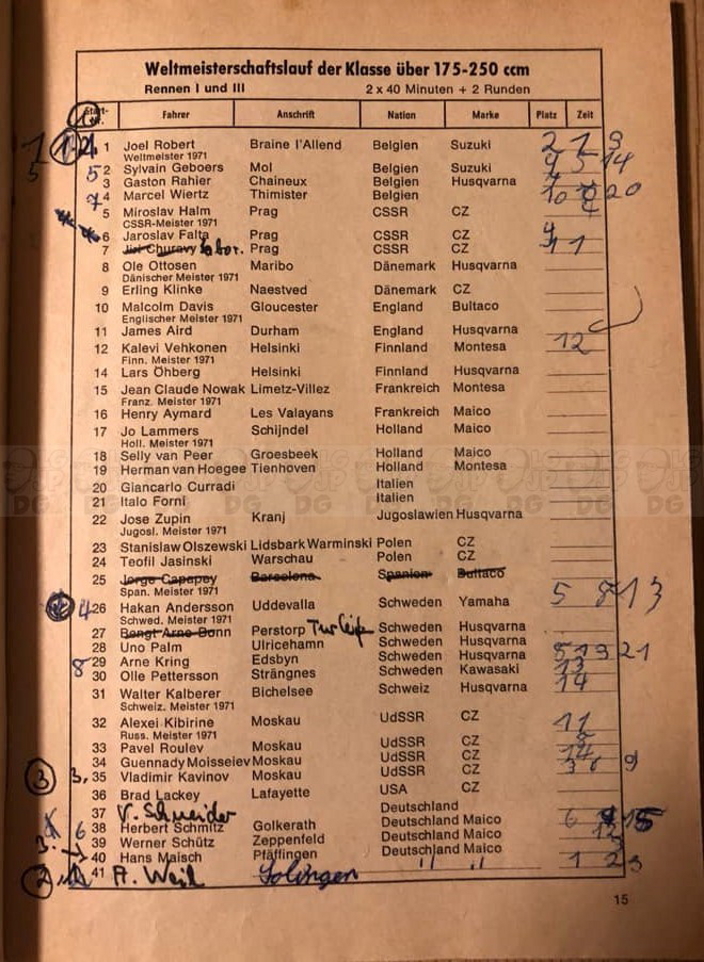 Weltmeisterschaftslauf der Klasse über 175-250 ccm
Rennen I und III 2 x 40 Minuten + 2 Runden
Start-Nr. Fahrer Anschrift Nation Marke Platz Zeit
1 Joel Robert Braine l'Allend Belgien Suzuki 2 1 3
Weltmeister 1971
5 2 Sylvain Geboers Mol Belgien Suzuki 9 5 14
3 Gaston Rahier Chaineux Belgien Husqvarna
7 4 Marcel Wiertz Thimister Belgien 10 20
5 Miroslav Halm Prag CSSR CZ
CSSR-Meister 1971
6 Jaroslav Falta Prag CSSR CZ
7 Jiri Churavy Prag CSSR CZ
8 Ole Ottosen Maribo Dänemark Husqvarna
Dänischer Meister 1971
9 Erling Klinke Naestved Dänemark CZ
10 Malcolm Davis Gloucester England Bultaco
Englischer Meister 1971
11 James Aird Durham England Husqvarna
12 Kalevi Vehkonen Helsinki Finnland Montesa 12
Finn. Meister 1971
14 Lars Öhberg Helsinki Finnland Husqvarna
15 Jean Claude Nowak Limetz-Villez Frankreich Montesa
Franz. Meister 1971
16 Henry Aymard Les Valayans Frankreich Maico
17 Jo Lammers Schijndel Holland Maico
Holl. Meister 1971
18 Selly van Peer Groesbeek Holland Maico
19 Herman van Hoegee Tienhoven Holland Montesa
20 Giancarlo Curradi Italien
21 Italo Forni Italien
22 Jose Zupin Kranj Jugoslawien Husqvarna
Jugosl. Meister 1971
23 Stanislaw Olszewski Lidsbark Warminski Polen CZ
24 Teofil Jasinski Warschau Polen CZ
25 Jorge Capapey Barcelona Spanien Bultaco
Span. Meister 1971
4 26 Hakan Andersson Uddevalla Schweden Yamaha 5 8 13
Schwed. Meister 1971
27 Bengt Arne Bonn Perstorp Schweden Husqvarna
28 Uno Palm Ulricehamn Schweden Husqvarna
8 29 Arne Kring Edsbyn Schweden Husqvarna 21
30 Olle Pettersson Strängnes Schweden Kawasaki 13
31 Walter Kalberer Bichelsee Schweiz Husqvarna 14
Schweiz. Meister 1971
32 Alexei Kibirine Moskau UdSSR CZ 11
Russ. Meister 1971
33 Pavel Roulev Moskau UdSSR CZ
34 Guennady Moisseiev Moskau UdSSR CZ 14
3 3. 35 Vladimir Kavinov Moskau UdSSR CZ 3 6 9
36 Brad Lackey Lafayette USA CZ
37 V. Schneider Deutschland
6 38 Herbert Schmitz Golkerath Deutschland Maico 6 15
39 Werner Schütz Zeppenfeld Deutschland Maico 12
40 Hans Maisch Pfäffingen Deutschland Maico
2 41 A. Weil Solingen " " 1 2 3
15